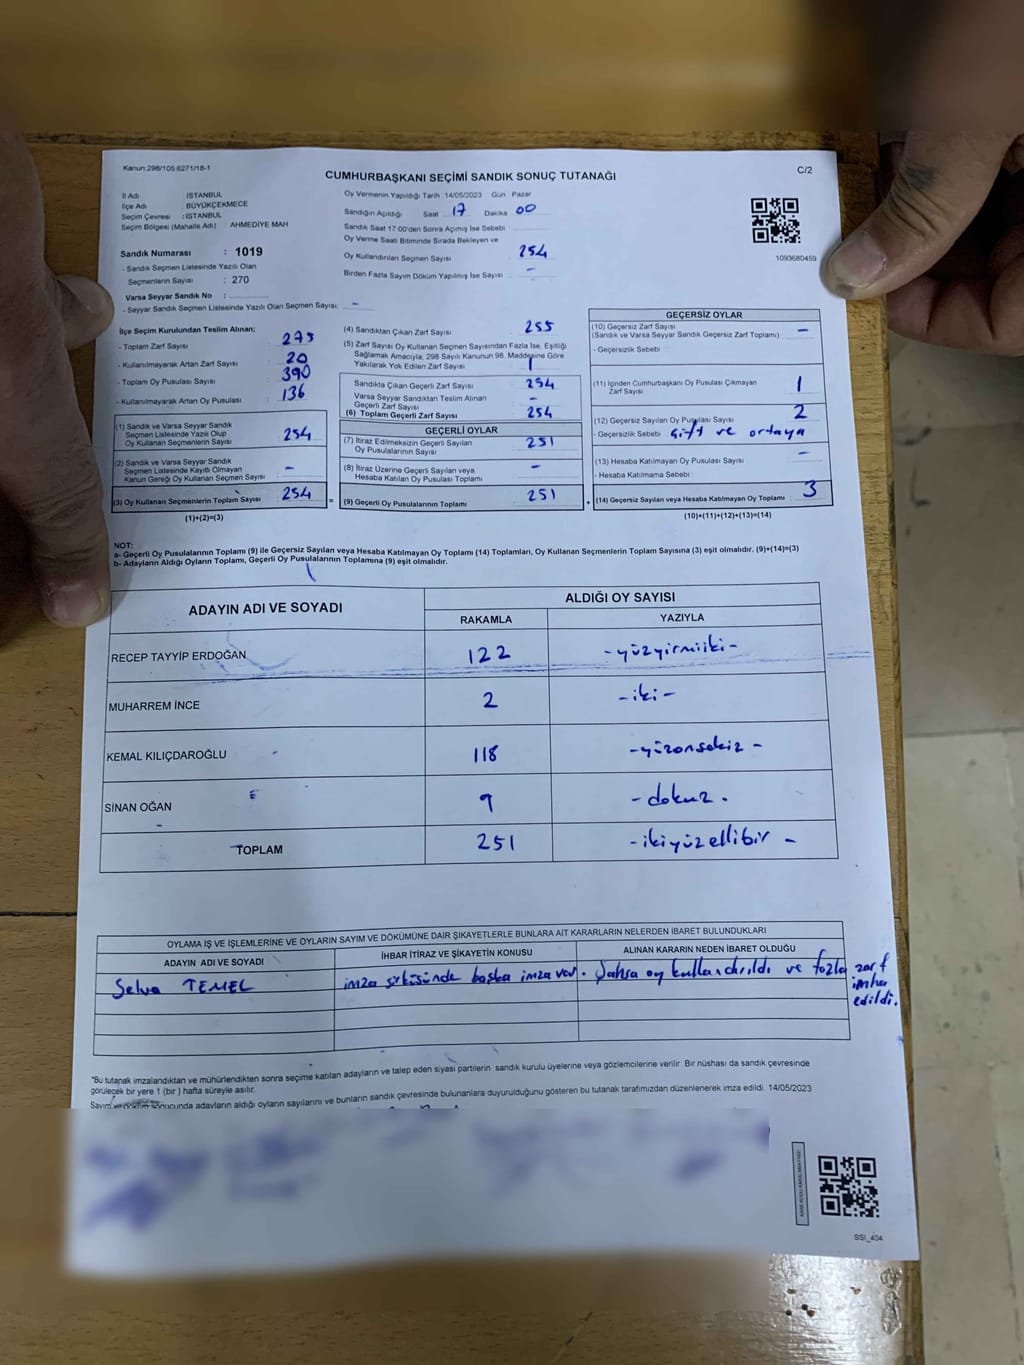 Kanun:298/105:6271/18-1
C/2
CUMHURBAŞKANI SEÇİMİ SANDIK SONUÇ TUTANAĞI
İl Adı : İSTANBUL
İlçe Adı : BÜYÜKÇEKMECE
Seçim Çevresi : İSTANBUL
Seçim Bölgesi (Mahalle Adı) : AHMEDİYE MAH
Sandık Numarası : 1019
- Sandık Seçmen Listesinde Yazılı Olan
Seçmenlerin Sayısı : 270
Varsa Seyyar Sandık No :
- Seyyar Sandık Seçmen Listesinde Yazılı Olan Seçmen Sayısı: -
Oy Vermenin Yapıldığı Tarih :14/05/2023 Gün : Pazar
Sandığın Açıldığı Saat 17 Dakika 00
Sandık Saat 17:00'den Sonra Açımış İse Sebebi
Oy Verme Saati Bitiminde Sırada Bekleyen ve
Oy Kullandırılan Seçmen Sayısı : 254
Birden Fazla Sayım Döküm Yapılmış İse Sayısı : -
1093680459
İlçe Seçim Kurulundan Teslim Alınan;
- Toplam Zarf Sayısı : 275
- Kullanılmayarak Artan Zarf Sayısı : 20
- Toplam Oy Pusulası Sayısı : 390
- Kullanılmayarak Artan Oy Pusulası : 136
(1) Sandık ve Varsa Seyyar Sandık
Seçmen Listesinde Yazılı Olup
Oy Kullanan Seçmenlerin Sayısı : 254
(2) Sandık ve Varsa Seyyar Sandık
Seçmen Listesinde Kayıtlı Olmayan
Kanun Gereği Oy Kullanan Seçmen Sayısı : -
(3) Oy Kullanan Seçmenlerin Toplam Sayısı : 254
(1)+(2)=(3)
(4) Sandıktan Çıkan Zarf Sayısı : 255
(5) Zarf Sayısı Oy Kullanan Seçmen Sayısından Fazla İse, Eşitliği
Sağlamak Amacıyla, 298 Sayılı Kanunun 98. Maddesine Göre
Yakılarak Yok Edilen Zarf Sayısı : 1
Sandıkta Çıkan Geçerli Zarf Sayısı : 254
Varsa Seyyar Sandıktan Teslim Alınan
Geçerli Zarf Sayısı : -
(6) Toplam Geçerli Zarf Sayısı : 254
GEÇERLİ OYLAR
(7) İtiraz Edilmeksizin Geçerli Sayılan
Oy Pusulalarının Sayısı : 251
(8) İtiraz Üzerine Geçerli Sayılan veya
Hesaba Katılan Oy Pusulası Toplamı : -
(9) Geçerli Oy Pusulalarının Toplamı : 251
GEÇERSİZ OYLAR
(10) Geçersiz Zarf Sayısı
(Sandık ve Varsa Seyyar Sandık Geçersiz Zarf Toplamı) : -
- Geçersizlik Sebebi :
(11) İçinden Cumhurbaşkanı Oy Pusulası Çıkmayan
Zarf Sayısı : 1
(12) Geçersiz Sayılan Oy Pusulası Sayısı : 2
- Geçersizlik Sebebi : Çift ve ortaya
(13) Hesaba Katılmayan Oy Pusulası Sayısı : -
- Hesaba Katılmama Sebebi :
(14) Geçersiz Sayılan veya Hesaba Katılmayan Oy Toplamı : 3
(10)+(11)+(12)+(13)=(14)
NOT:
a- Geçerli Oy Pusulalarının Toplamı (9) ile Geçersiz Sayılan veya Hesaba Katılmayan Oy Toplamı (14) Toplamları, Oy Kullanan Seçmenlerin Toplam Sayısına (3) eşit olmalıdır. (9)+(14)=(3)
b- Adayların Aldığı Oyların Toplamı, Geçerli Oy Pusulalarının Toplamına (9) eşit olmalıdır.
ADAYIN ADI VE SOYADI ALDIĞI OY SAYISI
RAKAMLA YAZIYLA
RECEP TAYYİP ERDOĞAN 122 -yüzyirmiiki-
MUHARREM İNCE 2 -iki-
KEMAL KILIÇDAROĞLU 118 -yüzonsekiz-
SİNAN OĞAN 9 -dokuz.
TOPLAM 251 -ikiyüzellibir-
OYLAMA İŞ VE İŞLEMLERİNE VE OYLARIN SAYIM VE DÖKÜMÜNE DAİR ŞİKAYETLERLE BUNLARA AİT KARARLARIN NELERDEN İBARET BULUNDUKLARI
ADAYIN ADI VE SOYADI İHBAR İTİRAZ VE ŞİKAYETİN KONUSU ALINAN KARARIN NEDEN İBARET OLDUĞU
Selva TEMEL imza sirküsünde başka imza var. Şahsa oy kullandırıldı ve fazla zarf
imha
edildi.
*Bu tutanak imzalandıktan ve mühürlendikten sonra seçime katılan adayların ve talep eden siyasi partilerin sandık kurulu üyelerine veya gözlemcilerine verilir. Bir nüshası da sandık çevresinde
görülecek bir yere 1 (bir) hafta süreyle asılır.
Sayım ve döküm sonucunda adayların aldığı oyların sayılarını ve bunların sandık çevresinde bulunanlara duyurulduğunu gösteren bu tutanak tarafımızdan düzenlenerek imza edildi. 14/05/2023
SSI_404